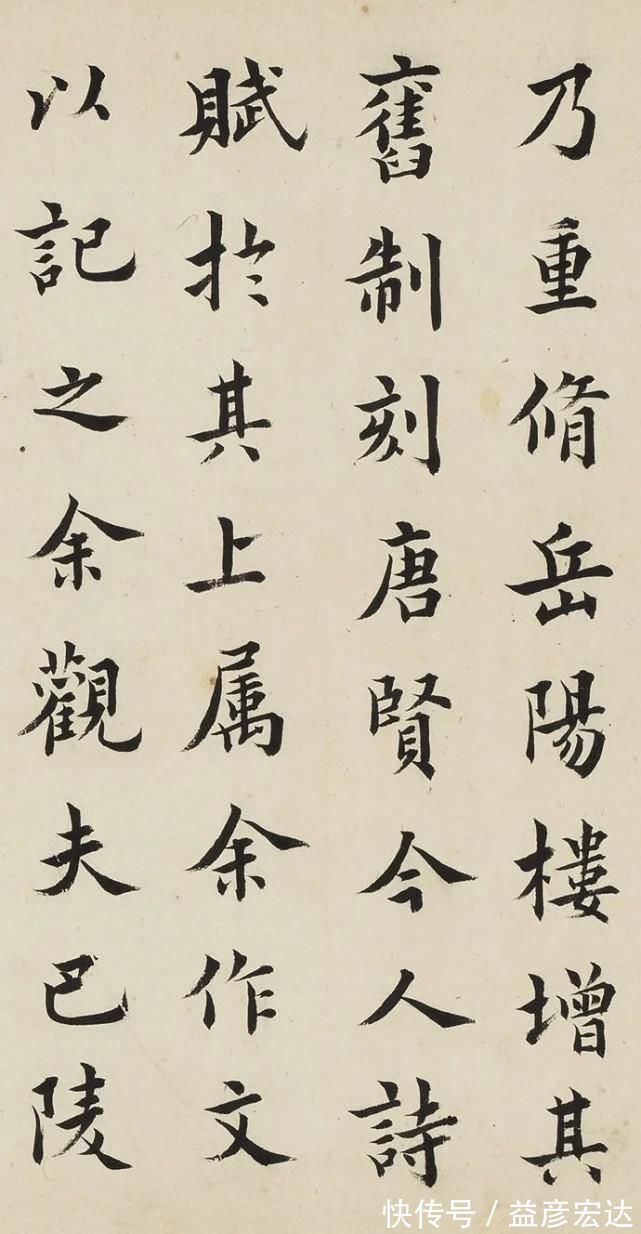 乃重脩岳陽樓增其
舊制刻唐賢今人詩
賦於其上属余作文
以記之余觀夫巴陵
快传号／益彦宏达